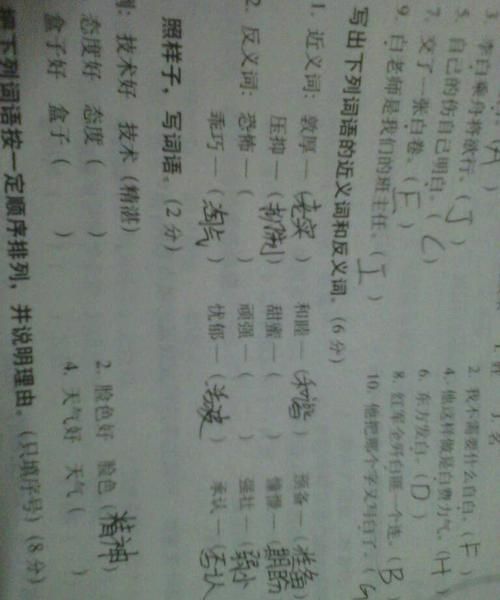 2. 我不需要什么自白。(F)
3. 李白乘舟将欲行。(J) 4. 他这样做是白费力气。(H)
5. 自己的伤自己明白。(C) 6. 东方发白。(D)
7. 交了一张白卷。(E) 8. 红军全歼白匪一个连。(B)
9. 白老师是我们的班主任。(I) 10. 他把那个字又写白了。(G)
写出下列词语的近义词和反义词。(6分)
1. 近义词: 敦厚—(老实) 和睦—(和谐) 预备—(准备)
压抑—(抑制) 甜蜜—( ) 憧憬—(期盼)
2. 反义词: 恐怖—( ) 顽强—( ) 强壮—(弱小)
乖巧—(淘气) 忧郁—(活泼) 承认—(否认)
照样子,写词语。(2分)
例: 技术好 技术(精湛)
态度好 态度( ) 2. 脸色好 脸色(精神)
盒子好 盒子( ) 4. 天气好 天气( )
把下列词语按一定顺序排列,并说明理由。(只填序号)(8分)